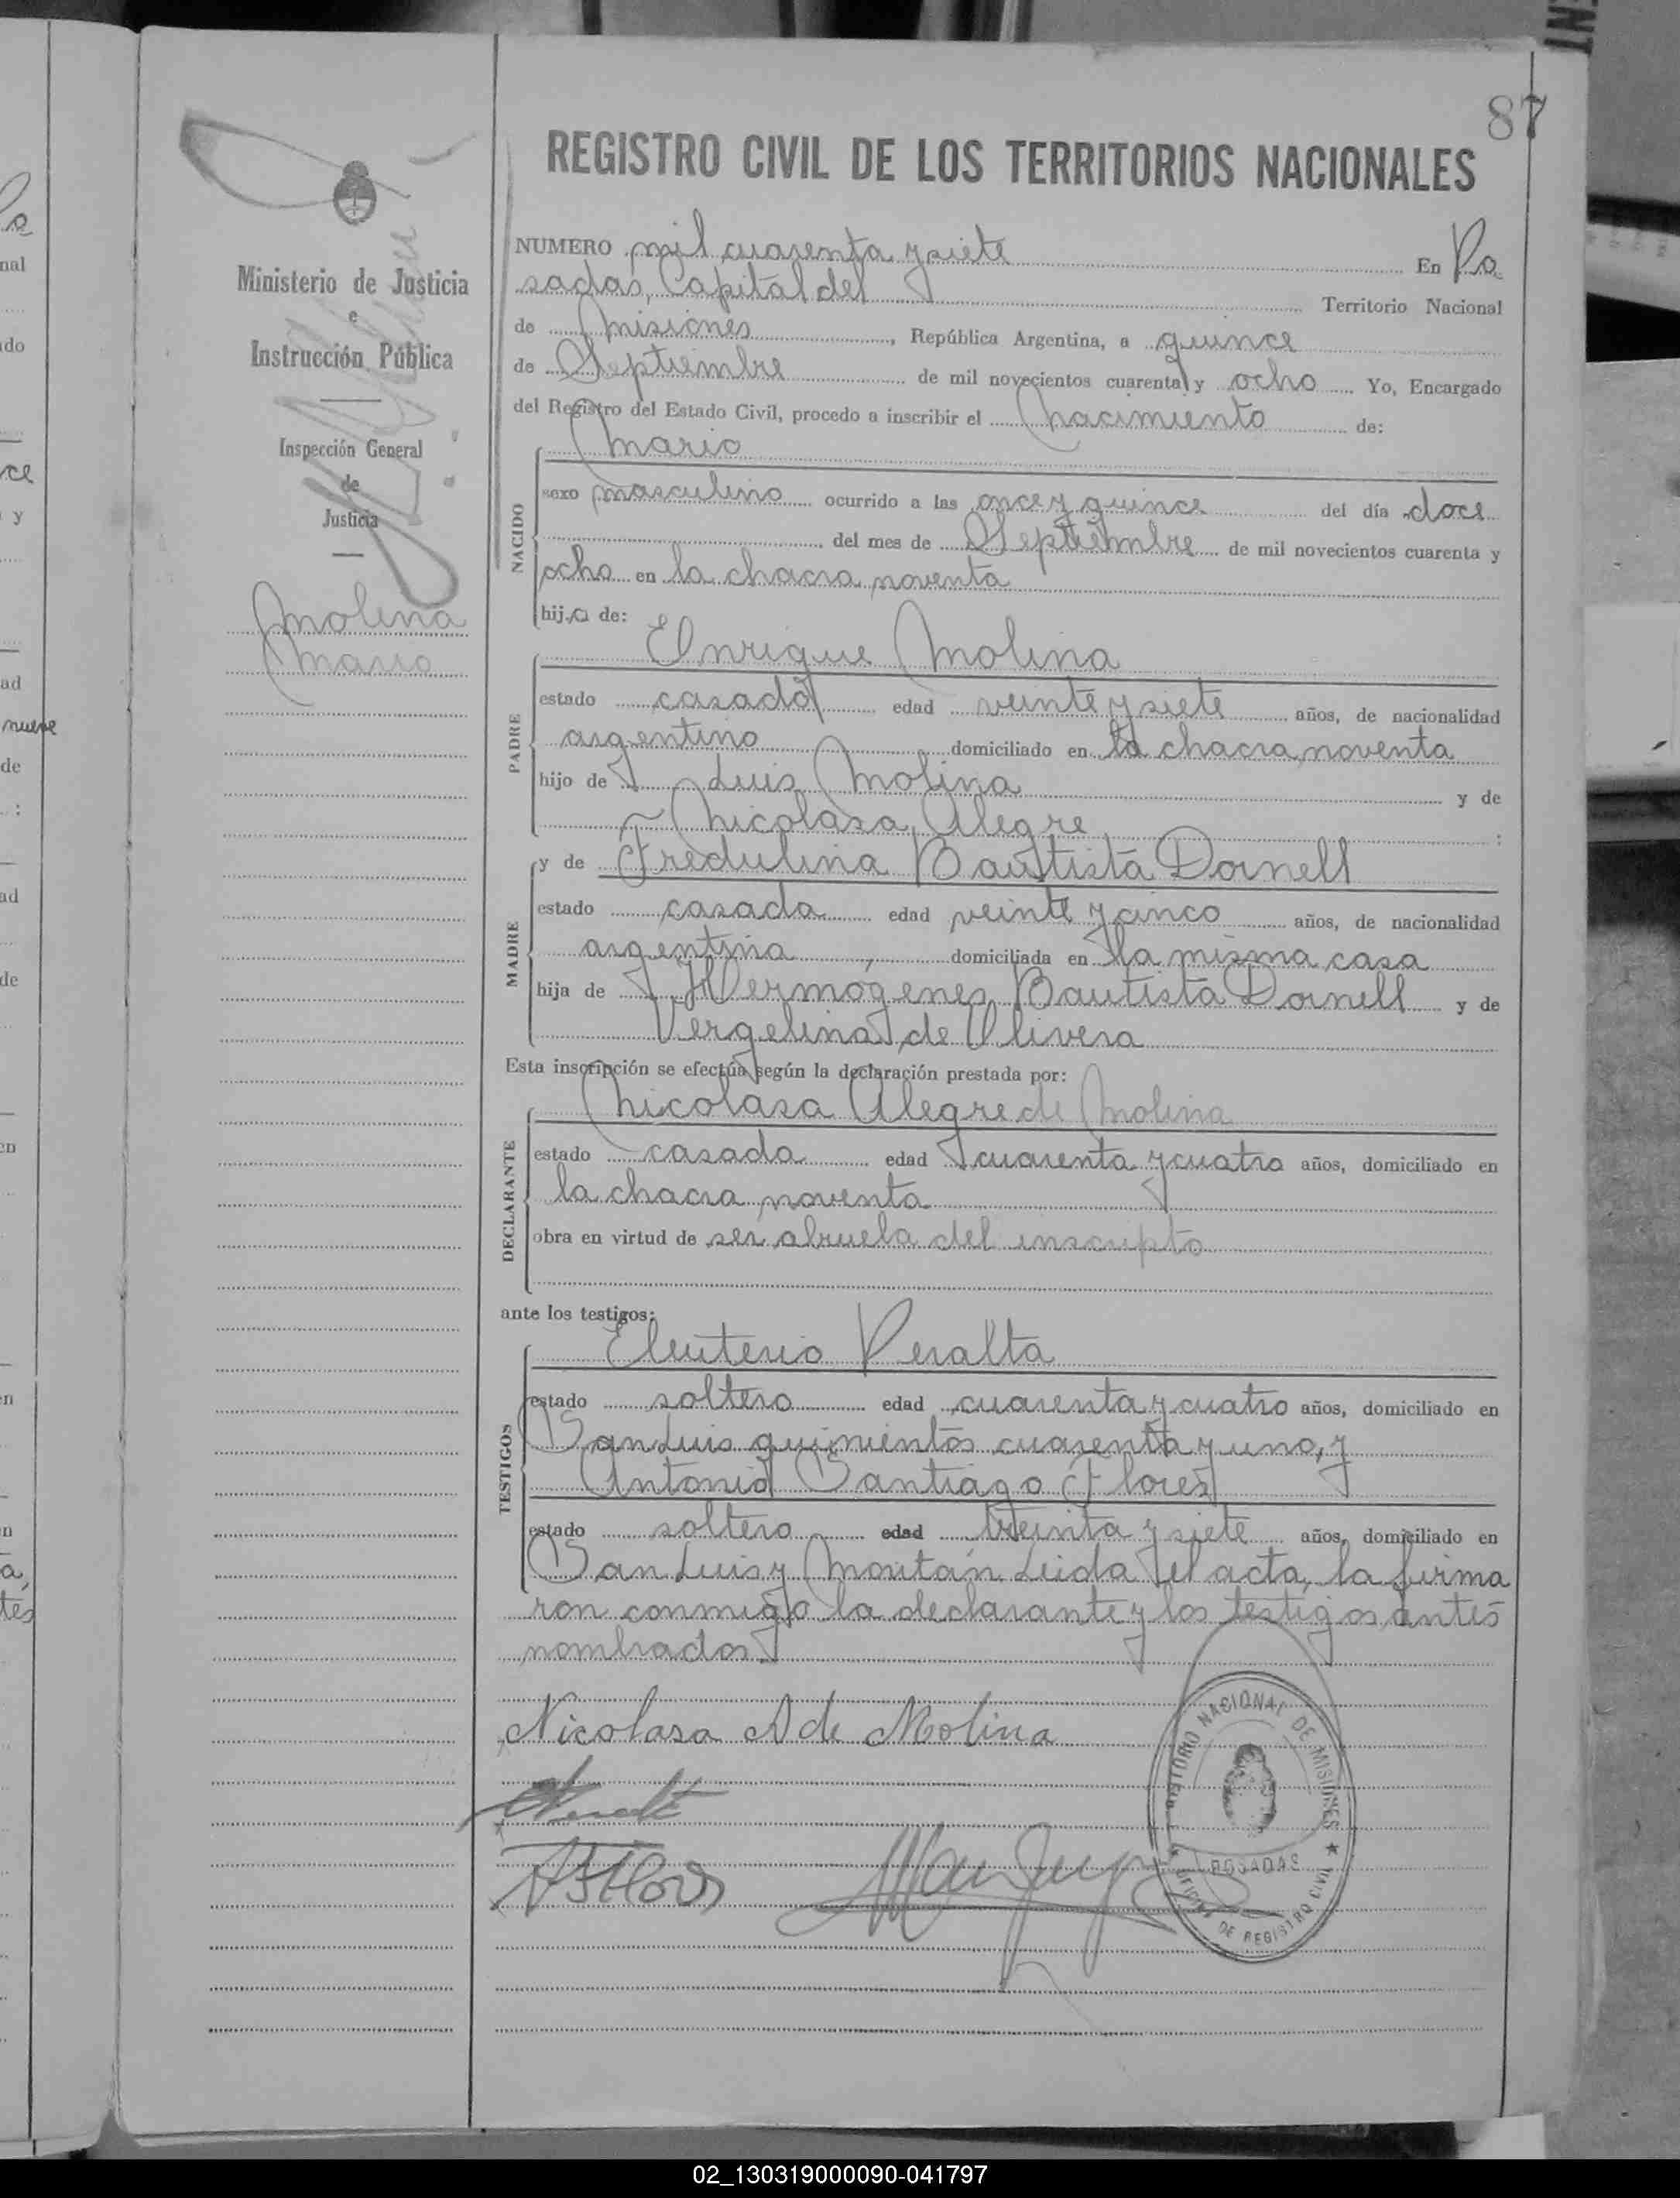 87
REGISTRO CIVIL DE LOS TERRITORIOS NACIONALES
Ministerio de Justicia
e
Instrucción Pública
Inspección General
de
Justicia
Molina
Mario
NUMERO mil cuarenta y siete En Po
sadas, Capital del Territorio Nacional
de Misiones, República Argentina, a quince
de Septiembre de mil novecientos cuarenta y ocho Yo, Encargado
del Registro del Estado Civil, procedo a inscribir el Nacimiento de:
NACIDO
Mario
sexo masculino ocurrido a las once y quince del día doce
del mes de Septiembre de mil novecientos cuarenta y
ocho en la chacra noventa
hijo de:
PADRE
Enrique Molina
estado casado edad veinte y siete años, de nacionalidad
argentino domiciliado en la chacra noventa
hijo de Luis Molina y de
Nicolasa Alegre;
MADRE
y de Fredulina Bautista Dornell
estado casada edad veinte y cinco años, de nacionalidad
argentina, domiciliada en la misma casa
hija de Hermógenes Bautista Dornell y de
Vergelina de Olivera
Esta inscripción se efectúa según la declaración prestada por:
DECLARANTE
Nicolasa Alegre de Molina
estado casada edad cuarenta y cuatro años, domiciliado en
la chacra noventa
obra en virtud de ser abuela del inscripto
ante los testigos:
TESTIGOS
Eleuterio Peralta
estado soltero edad cuarenta y cuatro años, domiciliado en
San Luis quinientos cuarenta y uno, y
Antonio Santiago Flores
estado soltero edad treinta y siete años, domiciliado en
San Luis y Moritán. Leida el acta, la firma
ron conmigo la declarante y los testigos antes
nombrados.
Nicolasa A de Molina
TERRITORIO NACIONAL DE MISIONES
POSADAS
OFICINA DE REGISTRO CIVIL
02_130319000090-041797